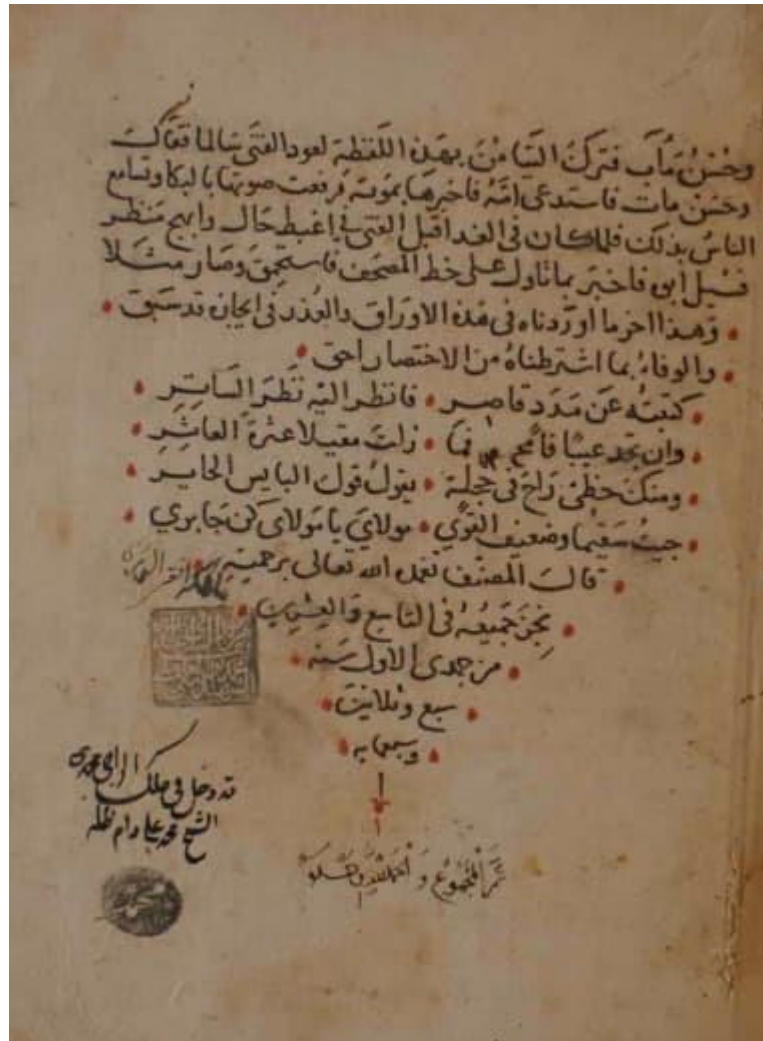 وحُسْنُ مَأٓب فترك التيامن بهذه اللفظة لعود الفتى سالما فقالت
وحسن مات فاستدعى امّهُ فاخبرها بموته فرفعت صوتها بالبكا وتسامع
الناسُ بذلك فلما كان فى الغد اقبل الفتى في اغبط حال وابهج منظر
فسئل ابوه فاخبر بما تاول على خط المصحف فاستحمق وصار مثلا
وهذا اخر ما اوردناه فى هذه الاوراق والعُذر فى ايجاز قد سبق
والوفاءُ بما اشترطناهُ من الاختصار احق
كتبتُه عن مَدَد قاصر فانظر اليْه نظَرَ السَاتِر
وان تجد عيبًا فامح فما زلتَ مقيلا عثرة العاثِرِ
ومنك حظى راح فى يقولُ قول البايس الحاير
جيتُ سقيما وضعيف القوي مولاي يا مولاي كن جابري
قالَ المصَنّف تغمده الله تعالى برحمته
نجَزَ جَمِيعُهُ فى التاسع والعشرين
من جمدى الاول سَنه
سبع وثلاثين
وسبعمايه
قد دخل في ملك
الشيخ محمد علي دام ظله
تم المجموع و